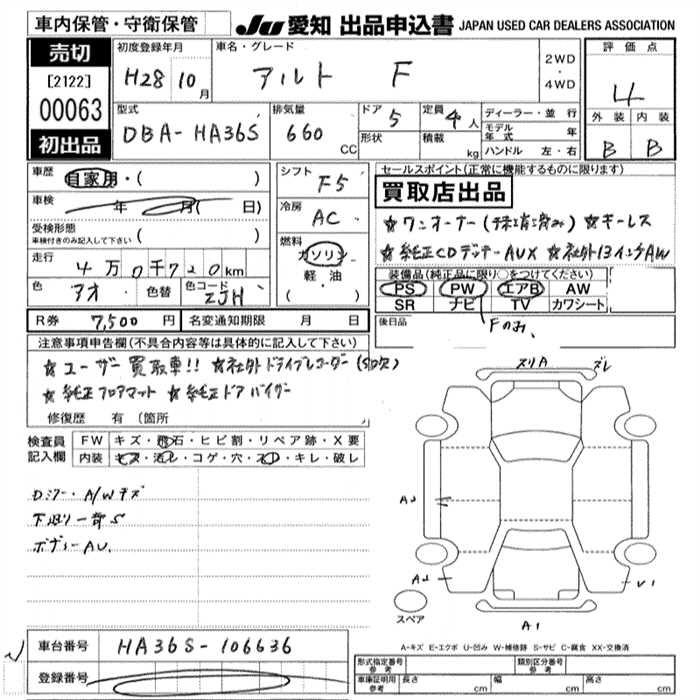 車内保管・守衛保管
JU 愛知 出品申込書 JAPAN USED CAR DEALERS ASSOCIATION
売切
[2122]
00063
初出品
初度登録年月 車名・グレード
H28 10月 アルト F
2WD・4WD
評価点
4
外装 内装
B B
型式 排気量 ドア 定員
DBA-HA36S 660 CC 5 4人
形状 積載 kg
ディーラー・並行
モデル年式 年
ハンドル 左・右
車歴 自家用・( )
車検 年 月( 日)
受検形態
車検付きのみ記入して下さい ( )
走行 4万0千720km
色 アオ 色替 色コード ZJH
シフト F5
冷房 AC
燃料 ガソリン・軽・油・( )
セールスポイント(正常に機能するものに限ります)
買取店出品
☆ワンオーナー( み) ☆キーレス
☆純正CDデッキーAUX ☆社外13インチAW
装備品(純正品に限り○をつけてください)
PS PW エアB AW
SR ナビ TV カワシート
Fのみ.
後日品
R券 7,500円 名変通知期限 月 日
注意事項申告欄(不具合内容等は具体的に記入して下さい)
☆ユーザー買取車!! ☆社外ドライブレコーダー(SD欠)
☆純正フロアマット ☆純正ドアバイザー
修復歴 有(箇所
検査員記入欄
FW キズ・飛石・ヒビ割・リペア跡・X要
内装 キズ・汚レ・コゲ・穴・スレ・キレ・破レ
Dミラー・A/Wキズ
下廻り一部S
ボディーAU.
スリA ズレ
A2
A2 U1
A1
スペア
A-キズ E-エクボ U-凹み W-補修跡 S-サビ C-腐食 XX-交換済
車台番号 HA36S-106636
登録番号
形式指定番号 参考 類別区分番号 参考
車庫証明用 参考 長さ cm 幅 cm 高さ cm